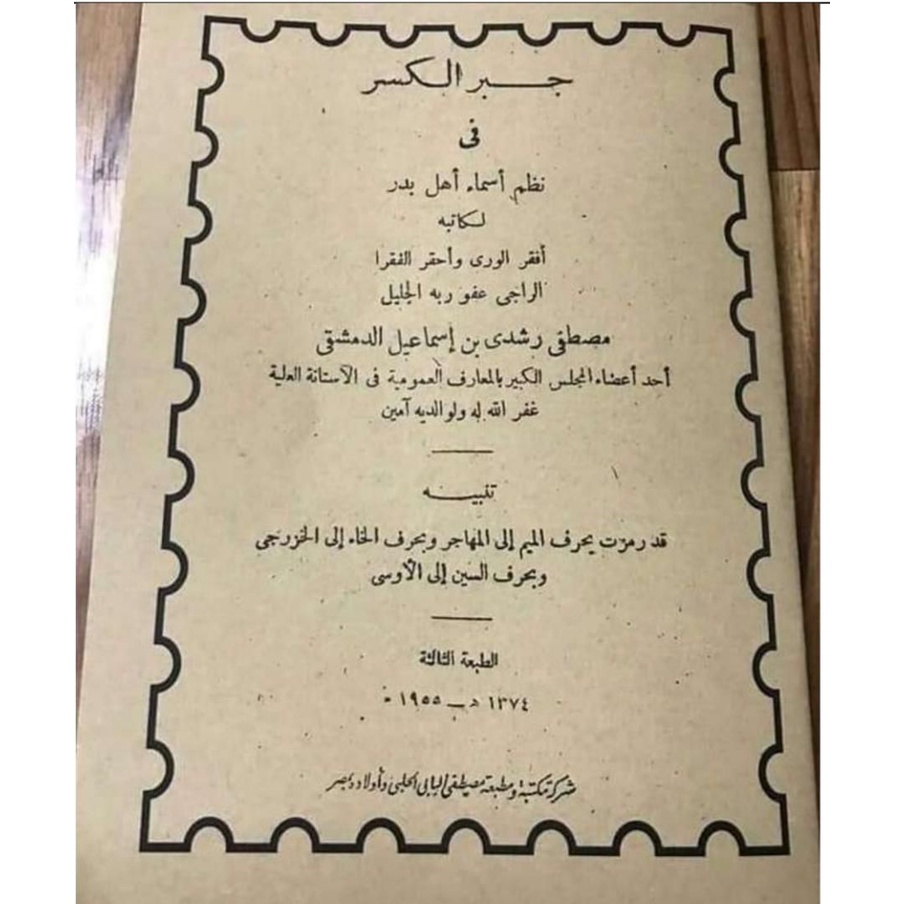 جبر الكسر
فى
نظم أسماء أهل بدر
لكاتبه
أفقر الورى وأحقر الفقرا
الراجى عفو ربه الجليل
مصطفى رشدى بن إسماعيل الدمشقى
أحد أعضاء المجلس الكبير بالمعارف العمومية فى الآستانة العلية
غفر الله له ولوالديه آمين
تنبيه
قد رمزت بحرف الميم إلى المهاجر وبحرف الخاء إلى الخزرجى
وبحرف السين إلى الأوسى
الطبعة الثالثة
١٣٧٤ هـ ــ ١٩٥٥ م
شركة مكتبة ومطبعة مصطفى البابى الحلبى وأولاده بمصر